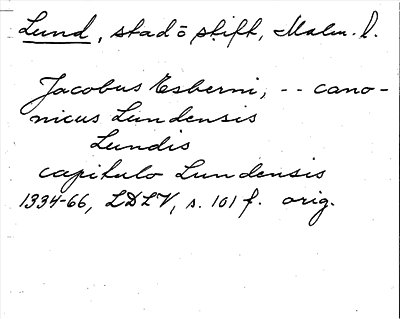 Lund, stad o stift, Malm. l.
Jacobus Esberni, -- cano-
nicus Lundensis
Lundis
capitulo Lundensis
1334-66, LDLV, s. 101 f. orig.